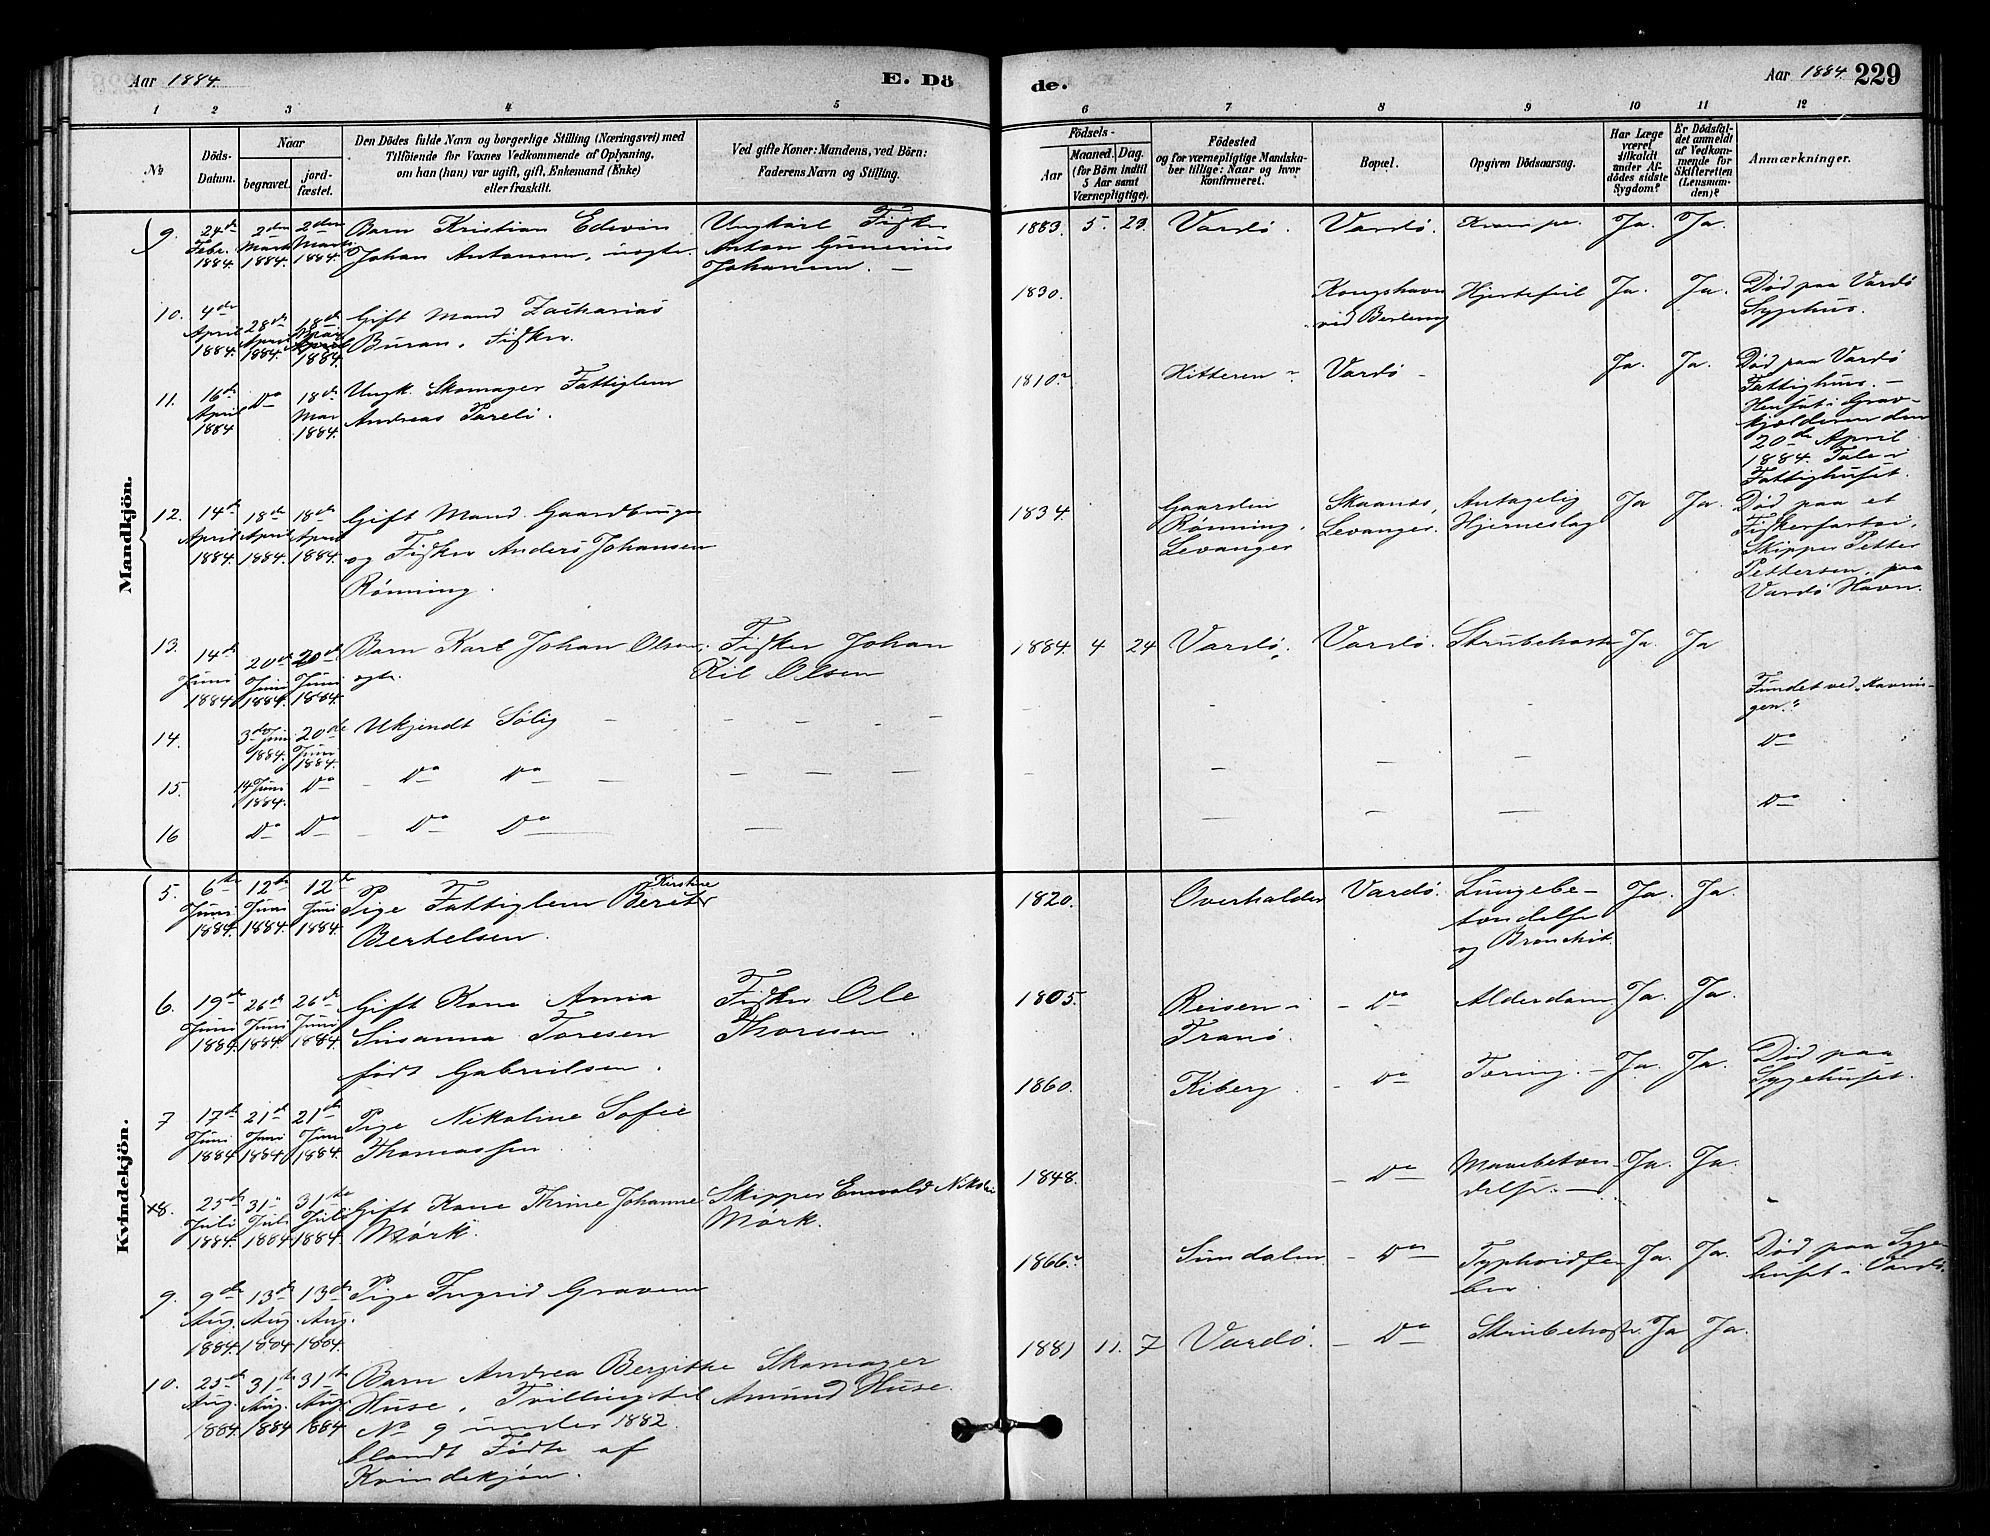 Aar 1884.
E. Dö
de.
Aar 1884
229
1 2 3 4 5 6 7 8 9 10 11 12
№
Döds-Datum.
Naar
begravet.
jord-fæstet.
Den Dödes fulde Navn og borgerlige Stilling (Næringsvei) med
Tilföiende for Voxnes Vedkommende af Oplysning,
om han (hun) var ugift, gift, Enkemand (Enke)
eller fraskilt.
Ved gifte Koner: Mandens, ved Börn:
Faderens Navn og Stilling.
Födsels-
Aar
Maaned.
Dag.
(for Börn indtil
5 Aar samt
Værnepligtige).
Födested
og for værnepligtige Mandska-
ber tillige: Naar og hvor
Konfirmeret.
Bopæl.
Opgiven Dödsaarsag.
Har Læge
været
tilkaldt
under Af-
dödes sidste
Sygdom?
Er Dödsfal-
det anmeldt
af Vedkom-
mende for
Skifteretten
(Lensman-
den)?
Anmærkninger.
Mandkjön.
9. 24de Febr. 1884. 2den Marts 1884. 2den Marts 1884. Barn Kristian Edevin Ungkarl Fisker 1883. 5. 23. Vardö. Vardö. Krampe. Ja. Ja.
Johan Antonsen, uægte. Anton Gunerius
Johansen. —
10. 4de April 1884. 28de April 1884. 18de Mai 1884. Gift Mand Zacharias 1830. Kongshavn Hjertefeil Ja. Ja. Död paa Vardö
Buran. Fisker. ved Berlevaag Syghus.
11. 16de April 1884 Do 18de Mai 1884. Ungk. Skomager Fattiglem 1810? Hitteren? Vardö — Ja. Ja. Död paa Vardö
Andreas Pareli. Fattighus. —
Hensat i Grav-
kjælderen den
20de April
1884. Tale i
Fattighuset.
12. 14de April 1884. 18de April 1884. 18de April 1884. Gift Mand. Gaardbruger 1834. Gaarden Skaanes, Antagelig Ja Ja. Död paa et
og Fisker Anders Johansen Rønning, Levanger. Hjerneslag Fiskerfartøi,
Rønning. Levanger Skipper Petter
Pettersen, paa
Vardö Havn.
13. 14de Juni 1884 20de Juni 1884. 20de Juni 1884. Barn Karl Johan Olsen, Fisker Johan 1884. 4 24 Vardö. Vardö. Strubehoste Ja. Ja
ægte. Kil Olsen
14. 3die Juni 1884. 20de Juni 1884. Ukjendt Sølig — — — — Fundet ved „Kavrin-
gen."
15. 14 Juni 1884. Do — Do Do — — — — Do
16 Do Do — Do Do — Do
Kvindekjön.
5. 6te Juni 1884. 12te Juni 1884. 12te Juni 1884. Pige Fattiglem Berit Kirstine 1820. Overhalden Vardö. Lungebe- Ja. Ja.
Bertelsen. tændelse
og Bronchit.
6. 19de Juni 1884. 26de Juni 1884. 26de Juni 1884. Gift Kone Anna Fisker Ole 1805. Reisen i — Do Alderdom Ja. Ja.
Susanna Toresen Thoresen. Tranö.
født Gabrielsen.
7 17de Juni 1884 21de Juni 1884 21de Juni 1884. Pige Nikoline Sofie 1860. Kiberg. — Do Tæring. — Ja. Ja. Död paa
Thomassen. Sygehuset.
×8. 25de Juli 1884. 31te Juli 1884 31te Juli 1884. Gift Kone Thrine Johanne Skipper Enevald Nikolai 1848. — Do Mavebetæn- Ja. Ja.
Mørk. Mørk. delse. —
9. 9de Aug. 1884. 13de Aug. 1884. 13de Aug. 1884. Pige Ingrid Gravem 1866? Sundalen — Do Typhoidfe- Ja. Ja. Död paa Syge-
ber huset i Vardö.
10. 25de Aug. 1884. 31te Aug. 1884 31te Aug. 1884 Barn Andrea Bergitthe Skomager 1881 11. 7 Vardö. — Do Strubehoste Ja Ja.
Huse, Tvilling til Amund Huse.
No 9 under 1882
blandt Fødte af
Kvindekjøn.